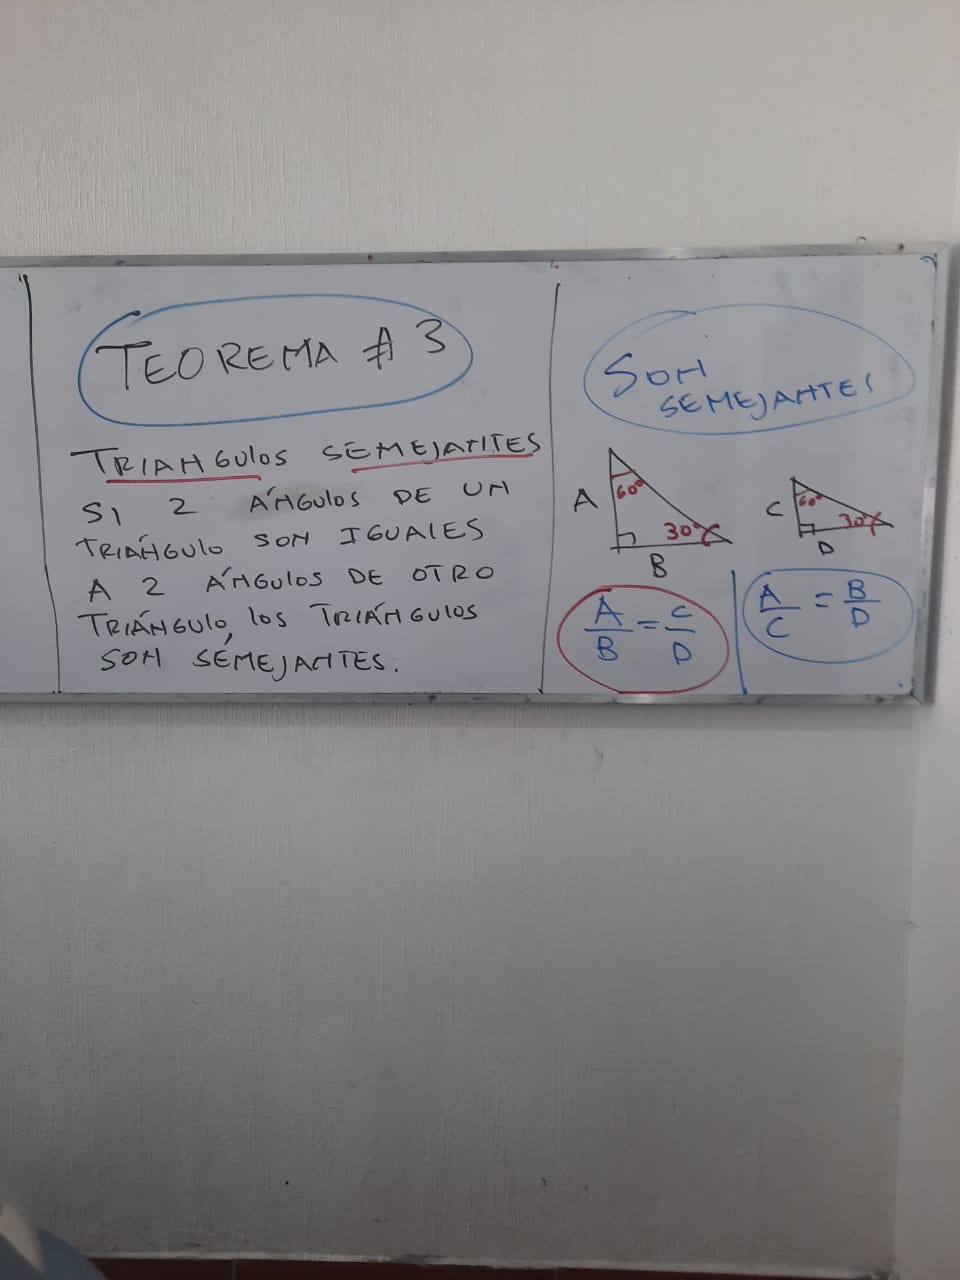 TEOREMA # 3
TRIANGULOS SEMEJANTES
SI 2 ÁNGULOS DE UN
TRIÁNGULO SON IGUALES
A 2 ÁNGULOS DE OTRO
TRIÁNGULO, LOS TRIÁNGULOS
SON SEMEJANTES.
SON
SEMEJANTES
A
60°
30°
B
C
60°
30°
D
A/B = C/D
A/C = B/D